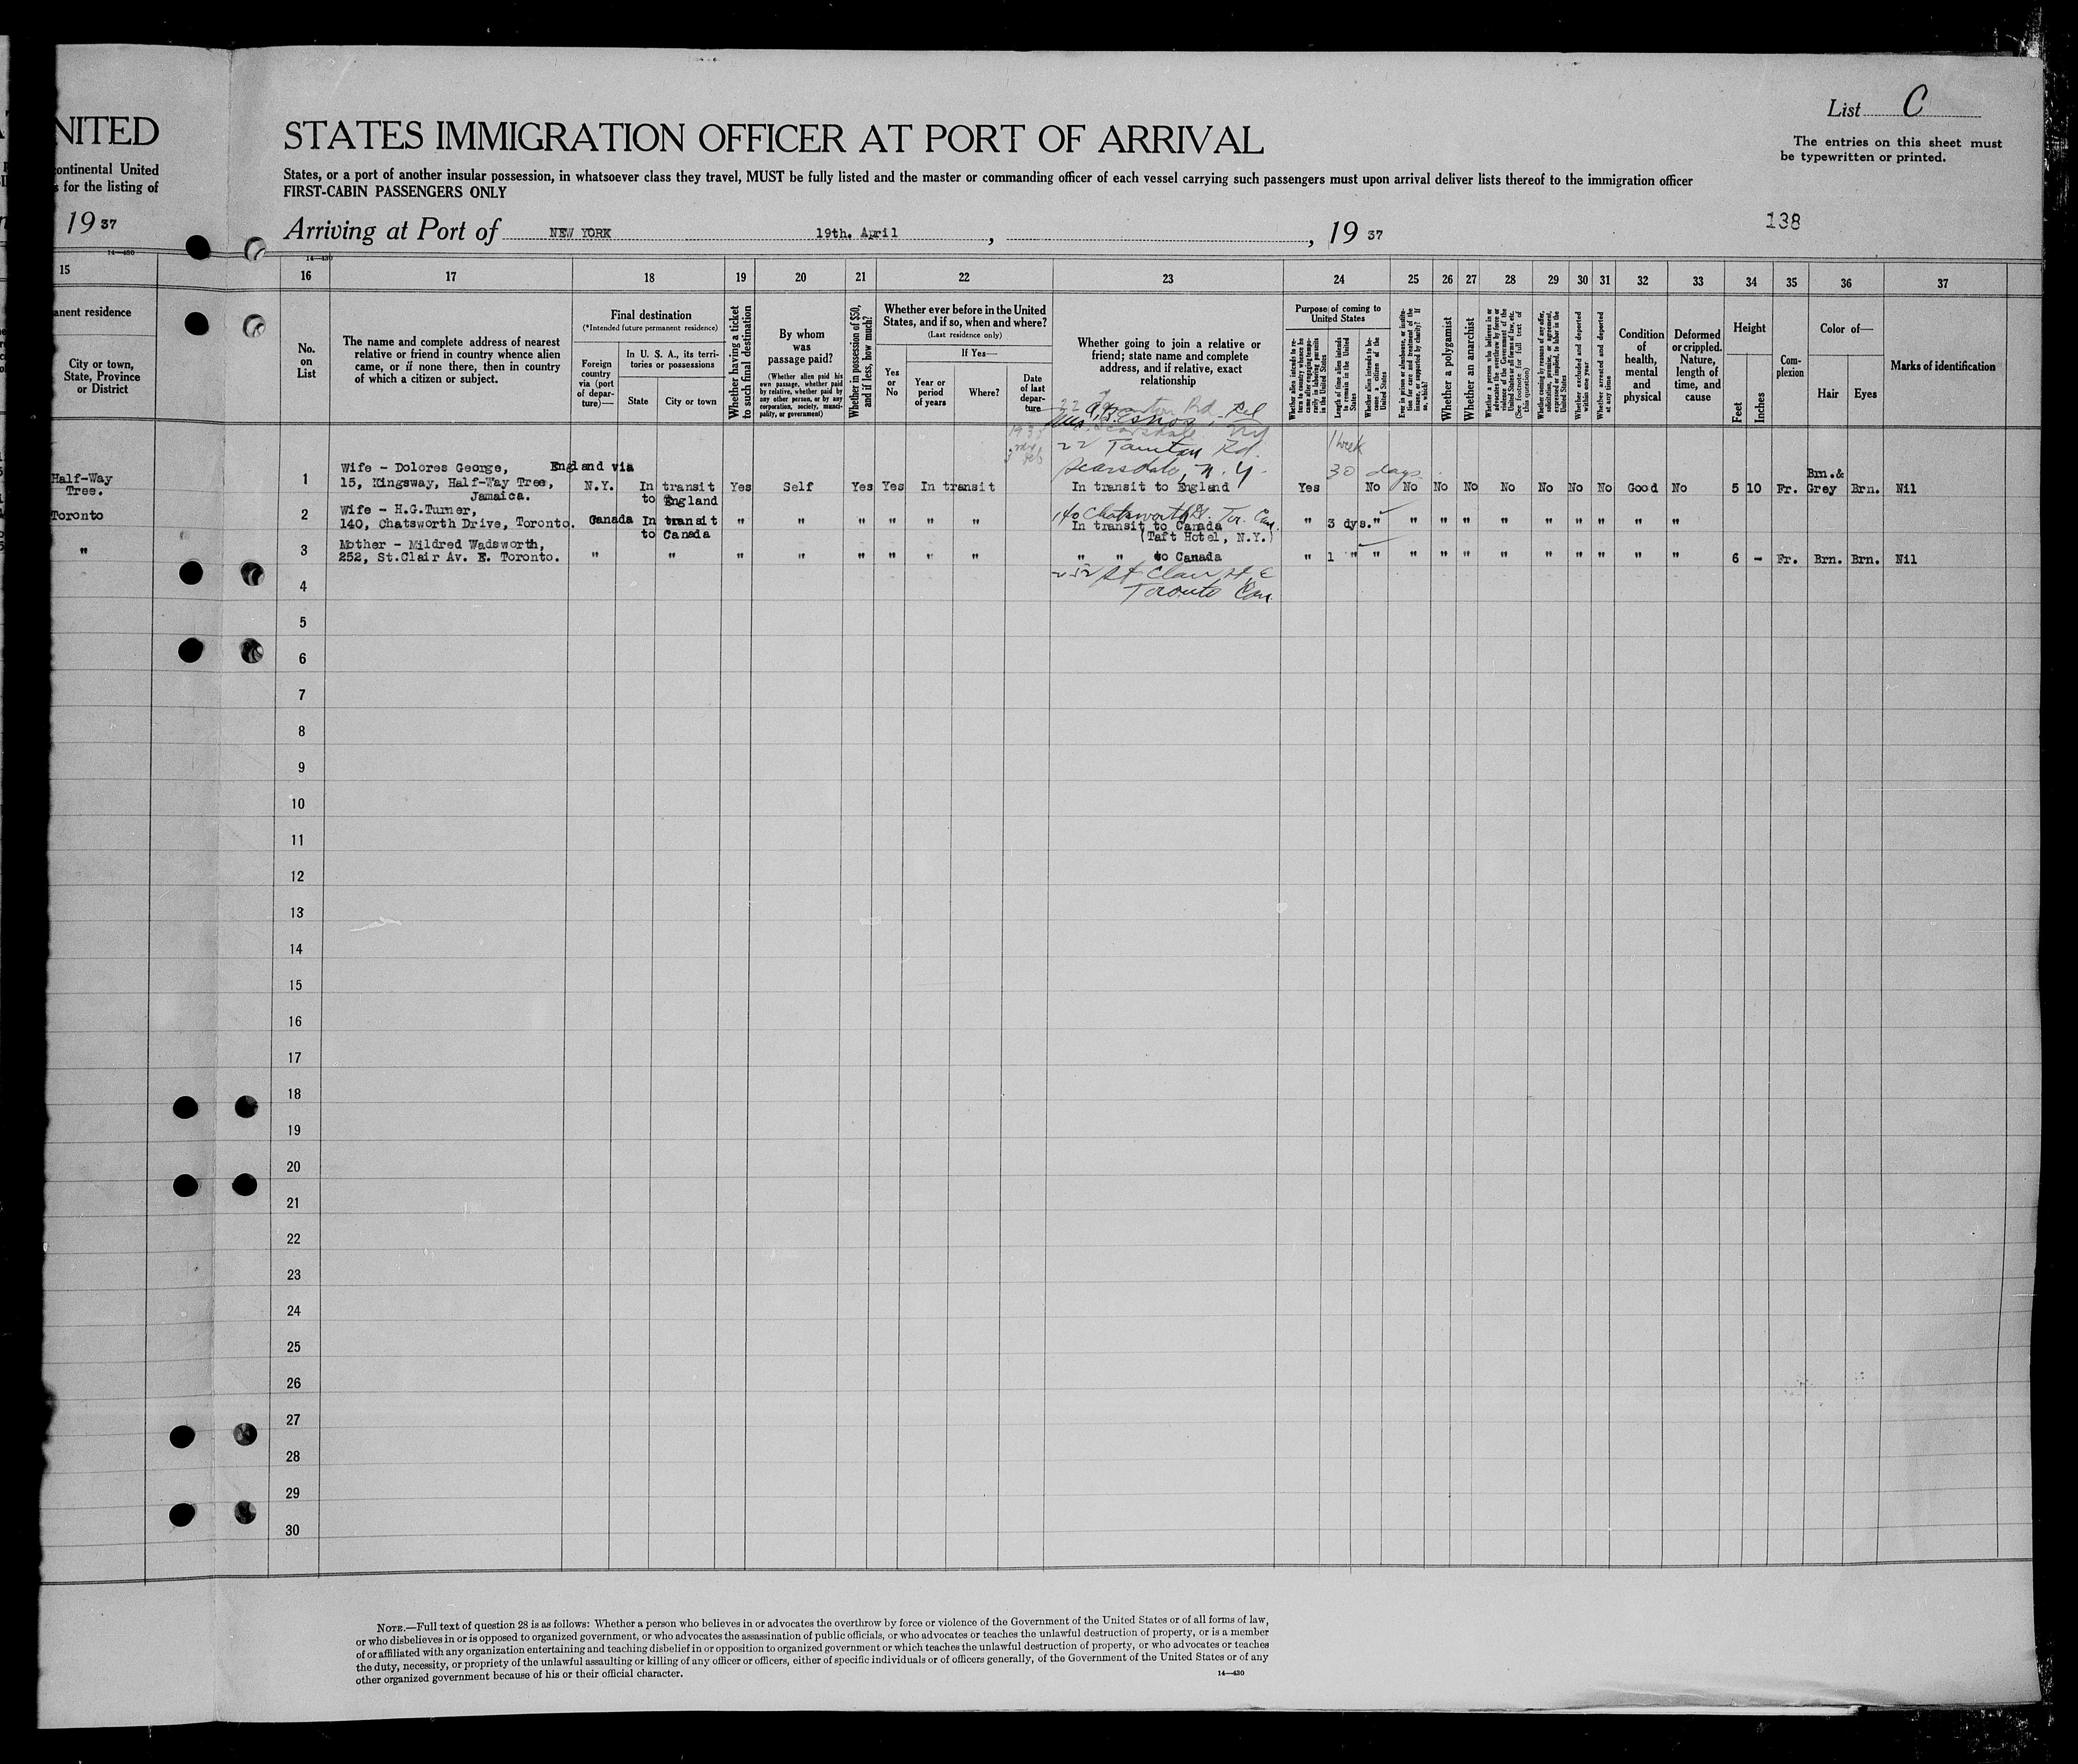 List C
The entries on this sheet must
be typewritten or printed.
NITED
STATES IMMIGRATION OFFICER AT PORT OF ARRIVAL
continental United
s for the listing of
States, or a port of another insular possession, in whatsoever class they travel, MUST be fully listed and the master or commanding officer of each vessel carrying such passengers must upon arrival deliver lists thereof to the immigration officer
FIRST-CABIN PASSENGERS ONLY
19 37
Arriving at Port of NEW YORK 19th. April , , 19 37
138
14—430
14—430
15 16 17 18 19 20 21 22 23 24 25 26 27 28 29 30 31 32 33 34 35 36 37
anent residence
City or town,
State, Province
or District
No.
on
List
The name and complete address of nearest
relative or friend in country whence alien
came, or if none there, then in country
of which a citizen or subject.
Final destination
(*Intended future permanent residence)
Foreign
country
via (port
of depar-
ture)—
In U. S. A., its terri-
tories or possessions
State
City or town
Whether having a ticket
to such final destination
By whom
was
passage paid?
(Whether alien paid his
own passage, whether paid
by relative, whether paid by
any other person, or by any
corporation, society, munici-
pality, or government)
Whether in possession of $50,
and if less, how much?
Whether ever before in the United
States, and if so, when and where?
(Last residence only)
Yes
or
No
If Yes—
Year or
period
of years
Where?
Date
of last
depar-
ture
Whether going to join a relative or
friend; state name and complete
address, and if relative, exact
relationship
Purpose of coming to
United States
Whether alien intends to re-
turn to country whence he
came after engaging tempo-
rarily in laboring pursuits
in the United States
Length of time alien intends
to remain in the United
States
Whether alien intends to be-
come a citizen of the
United States
Ever in prison or almshouse, or institu-
tion for care and treatment of the
insane, or supported by charity? If
so, which?
Whether a polygamist
Whether an anarchist
Whether a person who believes in or
advocates the overthrow by force or
violence of the Government of the
United States or all forms of law, etc.
(See footnote for full text of
this question)
Whether coming by reasons of any offer,
solicitation, promise, or agreement,
expressed or implied, to labor in the
United States
Whether excluded and deported
within one year
Whether arrested and deported
at any time
Condition
of
health,
mental
and
physical
Deformed
or crippled.
Nature,
length of
time, and
cause
Height
Feet
Inches
Com-
plexion
Color of—
Hair
Eyes
Marks of identification
22 Taunton Rd.
Scarsdale NY
22 Taunton Rd.
Scarsdale, N.Y.
1 week
30 days
Half-Way
Tree.
1
Wife - Dolores George,
15, Kingsway, Half-Way Tree,
Jamaica.
England via
N.Y. In transit
to England
Yes Self Yes Yes In transit In transit to England Yes No No No No No No No No Good No 5 10 Fr. Brn.&
Grey Brn. Nil
Toronto
2
Wife - H.G.Turner,
140, Chatsworth Drive, Toronto.
Canada In transit
to Canada
" " " " " " 140 Chatsworth Dr. Tor. Can.
In transit to Canada
(Taft Hotel, N.Y.)
" 3 dys. " " " " " " " " " "
"
3
Mother - Mildred Wadsworth,
252, St.Clair Av. E. Toronto.
" " " " " " " " " " to Canada " 1 " " " " " " " " " " " 6 - Fr. Brn. Brn. Nil
252 St Clair St. E
Toronto Can.
4
5
6
7
8
9
10
11
12
13
14
15
16
17
18
19
20
21
22
23
24
25
26
27
28
29
30
NOTE.—Full text of question 28 is as follows: Whether a person who believes in or advocates the overthrow by force or violence of the Government of the United States or of all forms of law,
or who disbelieves in or is opposed to organized government, or who advocates the assassination of public officials, or who advocates or teaches the unlawful destruction of property, or is a member
of or affiliated with any organization entertaining and teaching disbelief in or opposition to organized government or which teaches the unlawful destruction of property, or who advocates or teaches
the duty, necessity, or propriety of the unlawful assaulting or killing of any officer or officers, either of specific individuals or of officers generally, of the Government of the United States or of any
other organized government because of his or their official character.
14—430